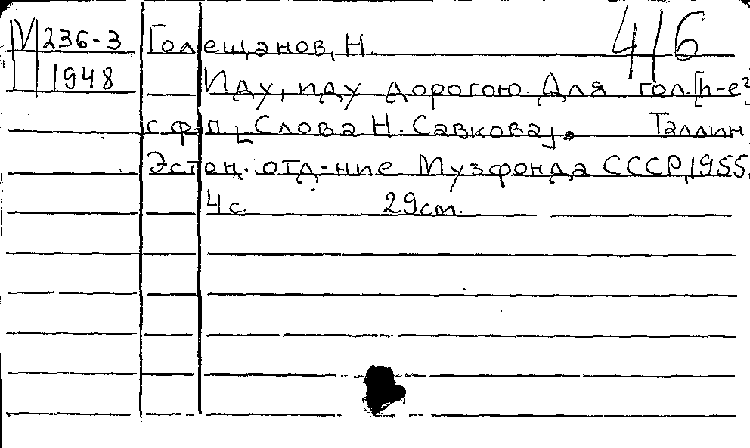 М 236-3 Голещанов, Н. 416
1948 Иду, иду дорогою. Для гол. [h-e²]
с ф-п. [Слова Н. Савкова]. Таллин
Эстон. отд-ние Музфонда СССР, 1955.
4 с. 29 см.